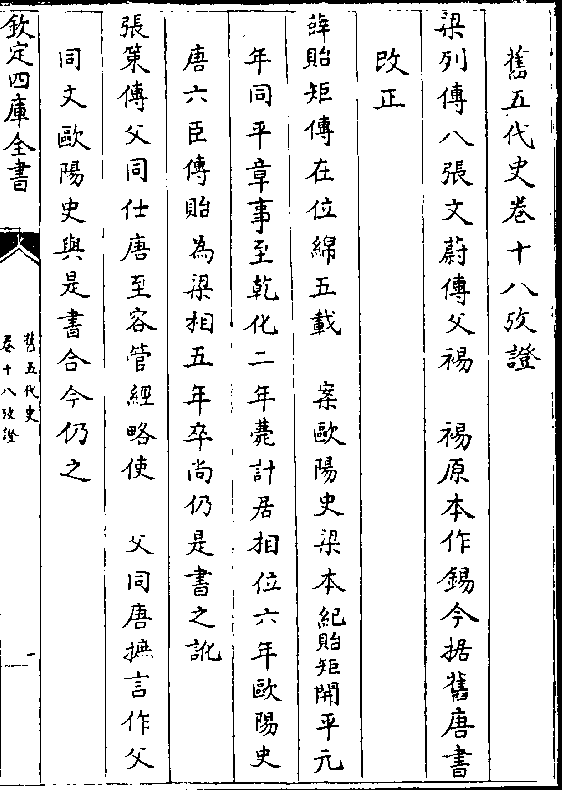 舊五代史卷十八攷證
梁列傳八張文蔚傳父裼　裼原本作錫今据舊唐書
改正
薛貽矩傳在位綿五載　案歐陽史梁本紀貽矩開平元
年同平章事至乾化二年薨計居相位六年歐陽史
唐六臣傳貽為梁相五年卒尚仍是書之訛
張策傳父同仕唐至容管經略使　父同唐摭言作父
同文歐陽史與是書合今仍之
欽定四庫全書
舊五代史
卷十八攷證
一